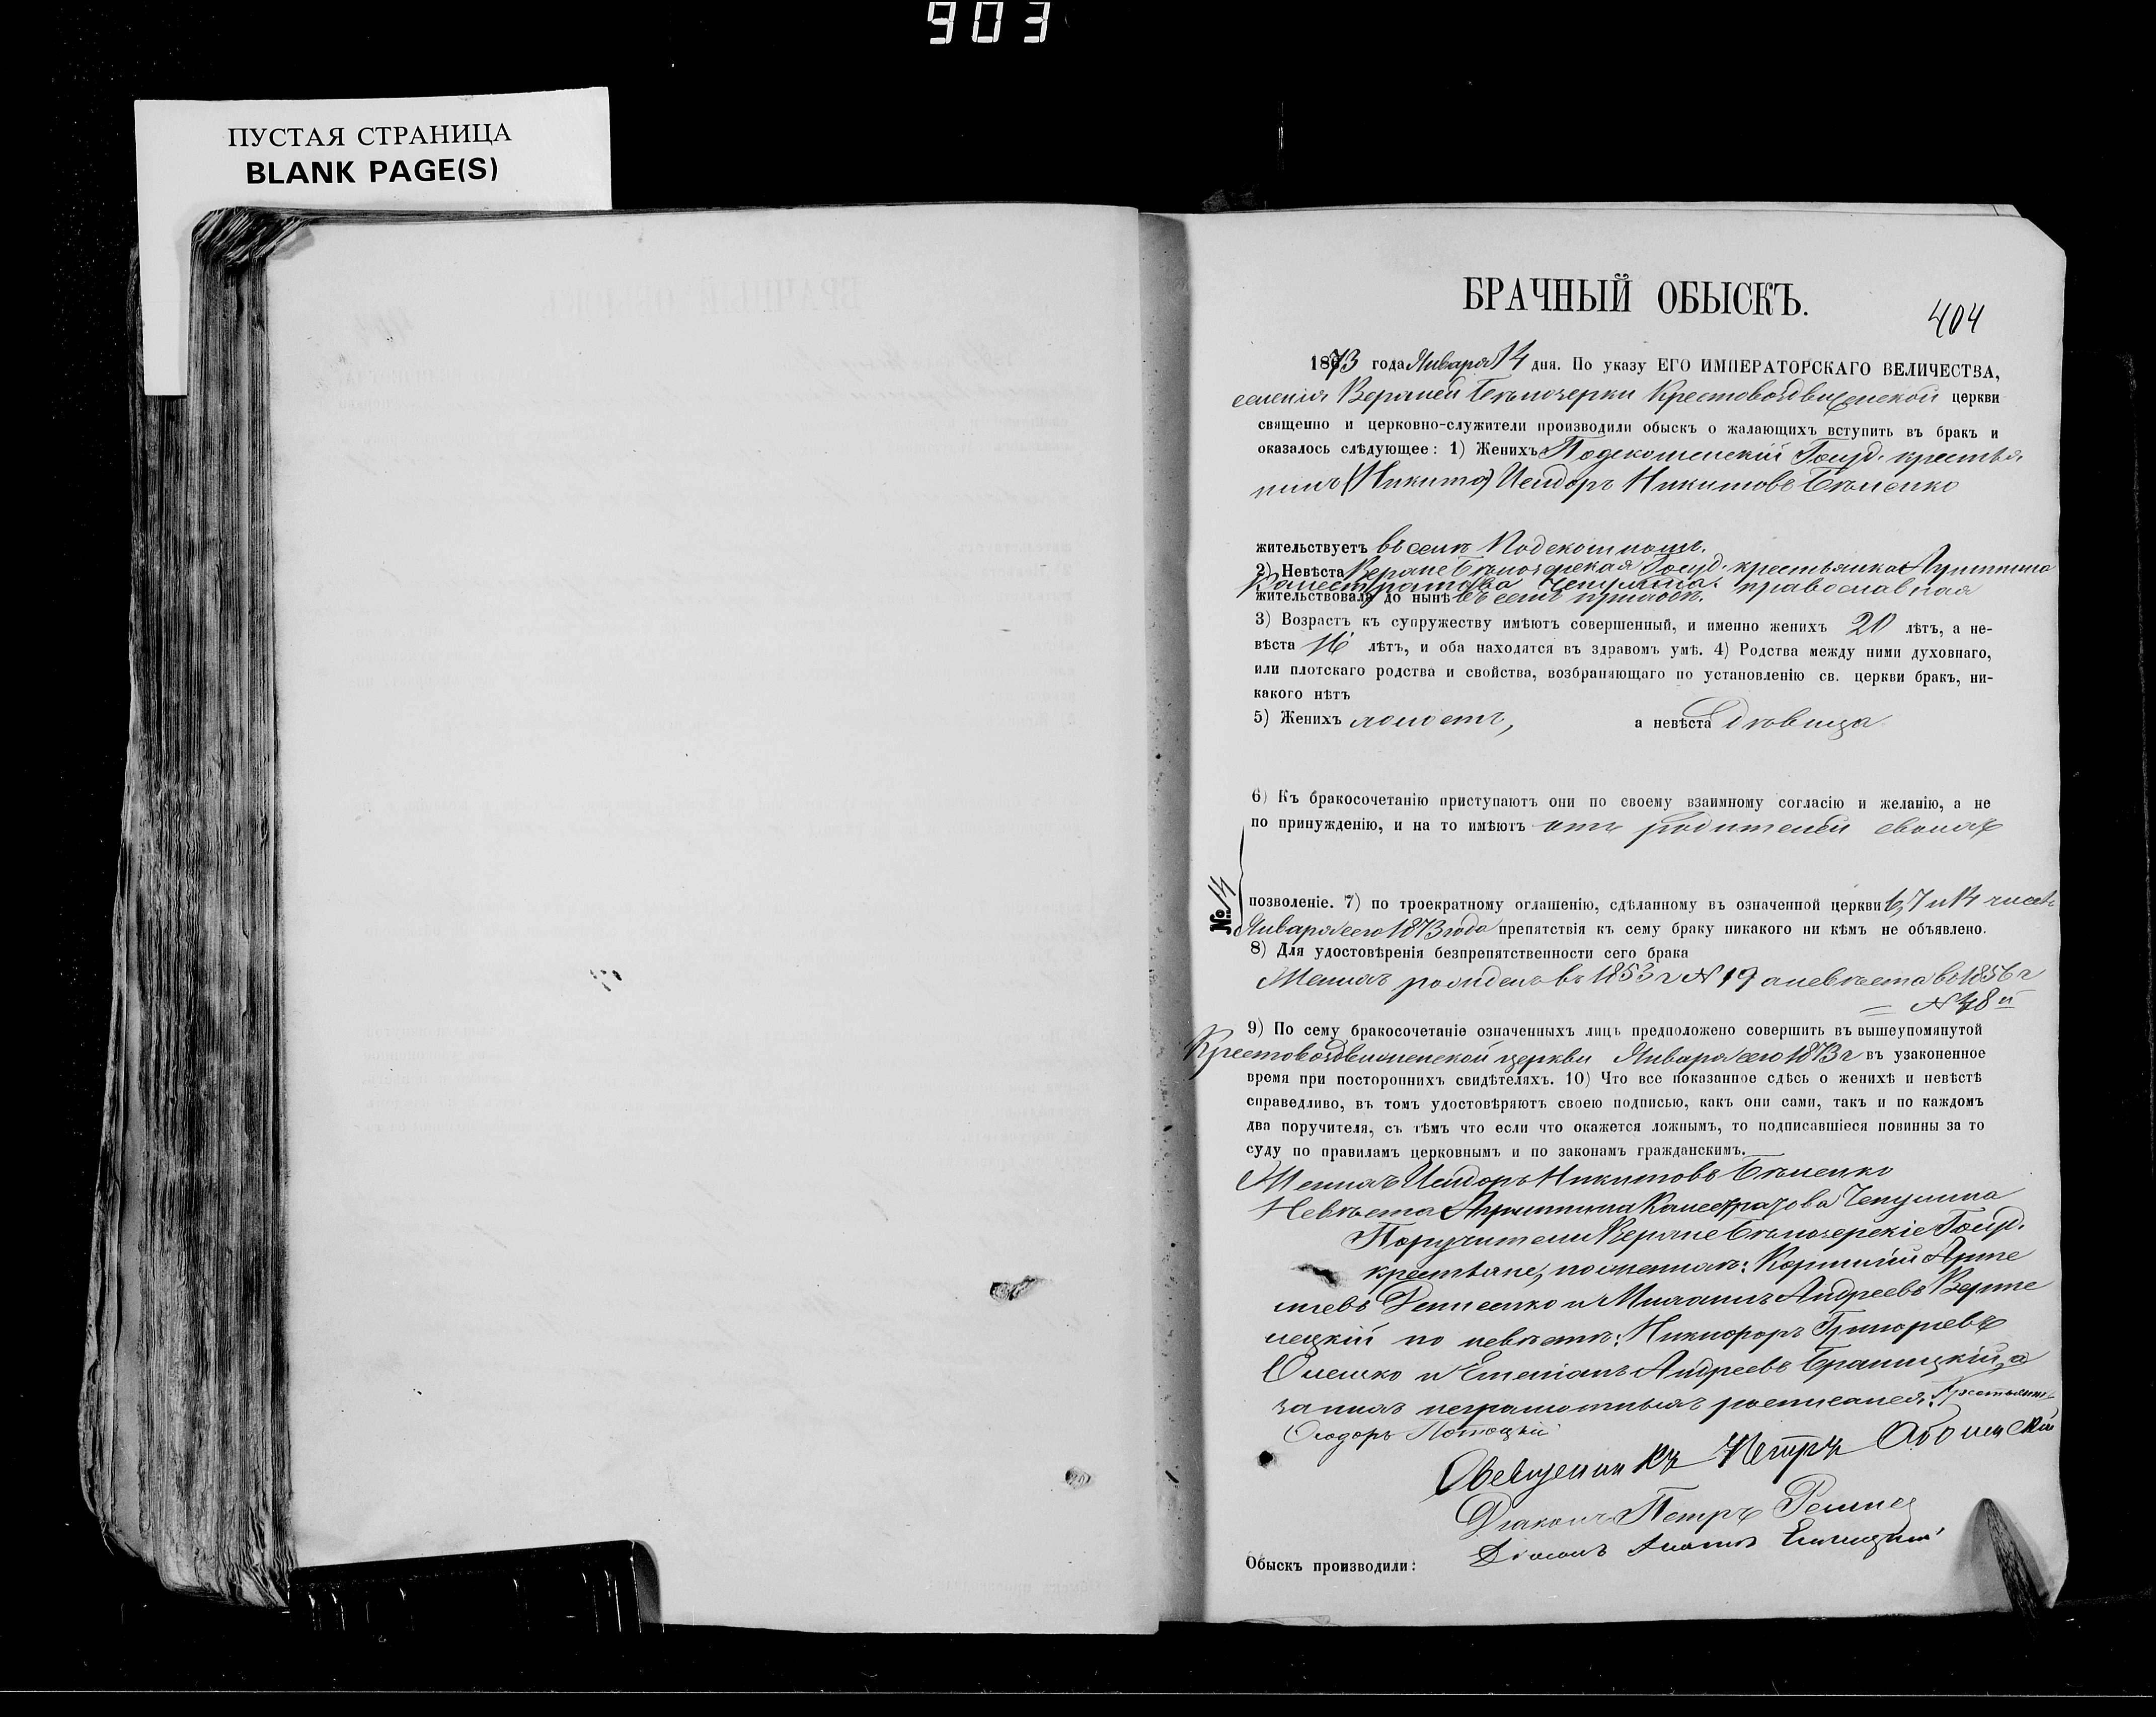 903
ПУСТАЯ СТРАНИЦА
BLANK PAGE(S)
БРАЧНЫЙ ОБЫСКЪ.
404
1873 года Января 14 дня. По указу ЕГО ИМПЕРАТОРСКАГО ВЕЛИЧЕСТВА,
селенія Верхней Бѣлозерки Крестовоздвиженской церкви
священно и церковно-служители производили обыскъ о жалающихъ вступить въ бракъ и
оказалось слѣдующее: 1) Женихъ Госуд. крестья
нинъ (Никита) Исидоръ Никитовъ Бѣленко
жительствуетъ въ селѣ
2) Невѣста Верхне Бѣлозерская Госуд. крестьянка
православная
жительствовала до нынѣ въ семъ приходѣ.
3) Возрастъ къ супружеству имѣютъ совершенный, и именно женихъ 20 лѣтъ, а не-
вѣста 16 лѣтъ, и оба находятся въ здравомъ умѣ. 4) Родства между ними духовнаго,
или плотскаго родства и свойства, возбраняющаго по установленію св. церкви бракъ, ни-
какого нѣтъ
5) Женихъ холостъ, а невѣста Дѣвица
6) Къ бракосочетанію приступаютъ они по своему взаимному согласію и желанію, а не
по принужденію, и на то имѣютъ отъ родителей своихъ
№ 14
позволеніе. 7) по троекратному оглашенію, сдѣланному въ означенной церкви 6, 7 и 14 числъ
Января сего 1873 года препятствія къ сему браку никакого ни кѣмъ не объявлено.
8) Для удостовѣренія безпрепятственности сего брака
Женихъ рожденъ въ 1853 г № 19 а невѣста въ 1856 г
9) По сему бракосочетаніе означенныхъ лицъ предположено совершить въ вышеупомянутой
Крестовоздвиженской церкви Января сего 1873 г въ узаконенное
время при постороннихъ свидѣтеляхъ. 10) Что все показанное сдѣсь о женихѣ и невѣстѣ
справедливо, въ томъ удостовѣряютъ своею подписью, какъ они сами, такъ и по каждомъ
два поручителя, съ тѣмъ что если что окажется ложнымъ, то подписавшіеся повинны за то
суду по правиламъ церковнымъ и по законамъ гражданскимъ.
Женихъ Исидоръ Никитовъ Бѣленко
Невѣста
Поручители Верхне Бѣлозерскіе Госуд.
крестьяне, по женихѣ: Корнилій Арте
міевъ Денисенко и Михаилъ Андреевъ Верте
лецкій по невѣстѣ: Никифоръ Григорьевъ
Олешко и Емеліанъ Андреевъ Браницкій, а
за нихъ неграмотныхъ росписался: Крестьянинъ
Ѳеодоръ Потоцкій
Священникъ Петръ
Діаконъ Петръ
Обыскъ производили: